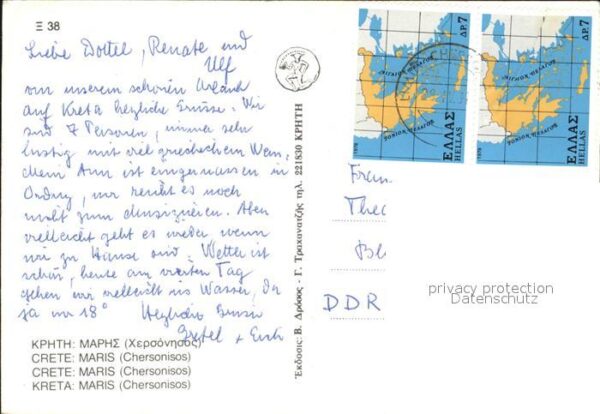 Ξ 38
Liebe Dottel, Renate und
Ulf
von unserem schönen Urlaub
auf Kreta herzliche Grüsse. Wir
sind 7 Personen, immer sehr
lustig mit viel griechischem Wein,
mein Arm ist einigermassen in
Ordng, nur reicht es noch
nicht zum dirigieren. Aber
vielleicht geht es wieder wenn
wir zu Hause sind. Wetter ist
schön, heute am vierten Tag
gehen wir vielleicht ins Wasser, da
ja nur 18° Herzliche Grüsse
Gretel + Erich
ΚΡΗΤΗ: ΜΑΡΗΣ (Χερσόνησος)
CRETE: MARIS (Chersonisos)
CRETE: MARIS (Chersonisos)
KRETA: MARIS (Chersonisos)
Έκδοσις: Β. Δρόσος - Γ. Τραχανατζής τηλ. 221830 ΚΡΗΤΗ
ΔΡ. 7
ΑΙΓΑΙΟΝ ΠΕΛΑΓΟΣ
ΙΟΝΙΟΝ ΠΕΛΑΓΟΣ
ΕΛΛΑΣ
HELLAS
1978
ΔΡ. 7
ΑΙΓΑΙΟΝ ΠΕΛΑΓΟΣ
ΙΟΝΙΟΝ ΠΕΛΑΓΟΣ
ΕΛΛΑΣ
HELLAS
1978
Fram
Theo
Bl
DDR
privacy protection
Datenschutz